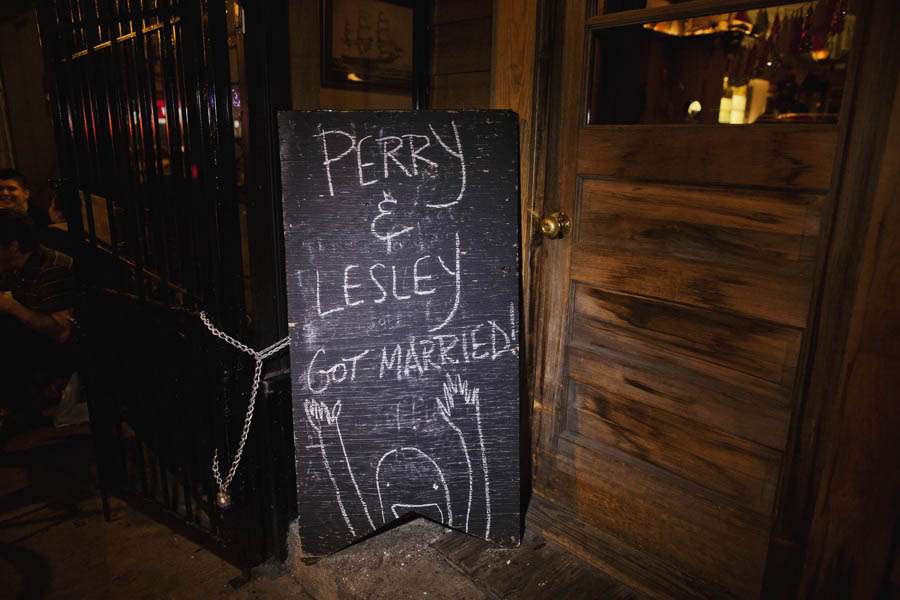 PERRY
&
LESLEY
GOT MARRIED!